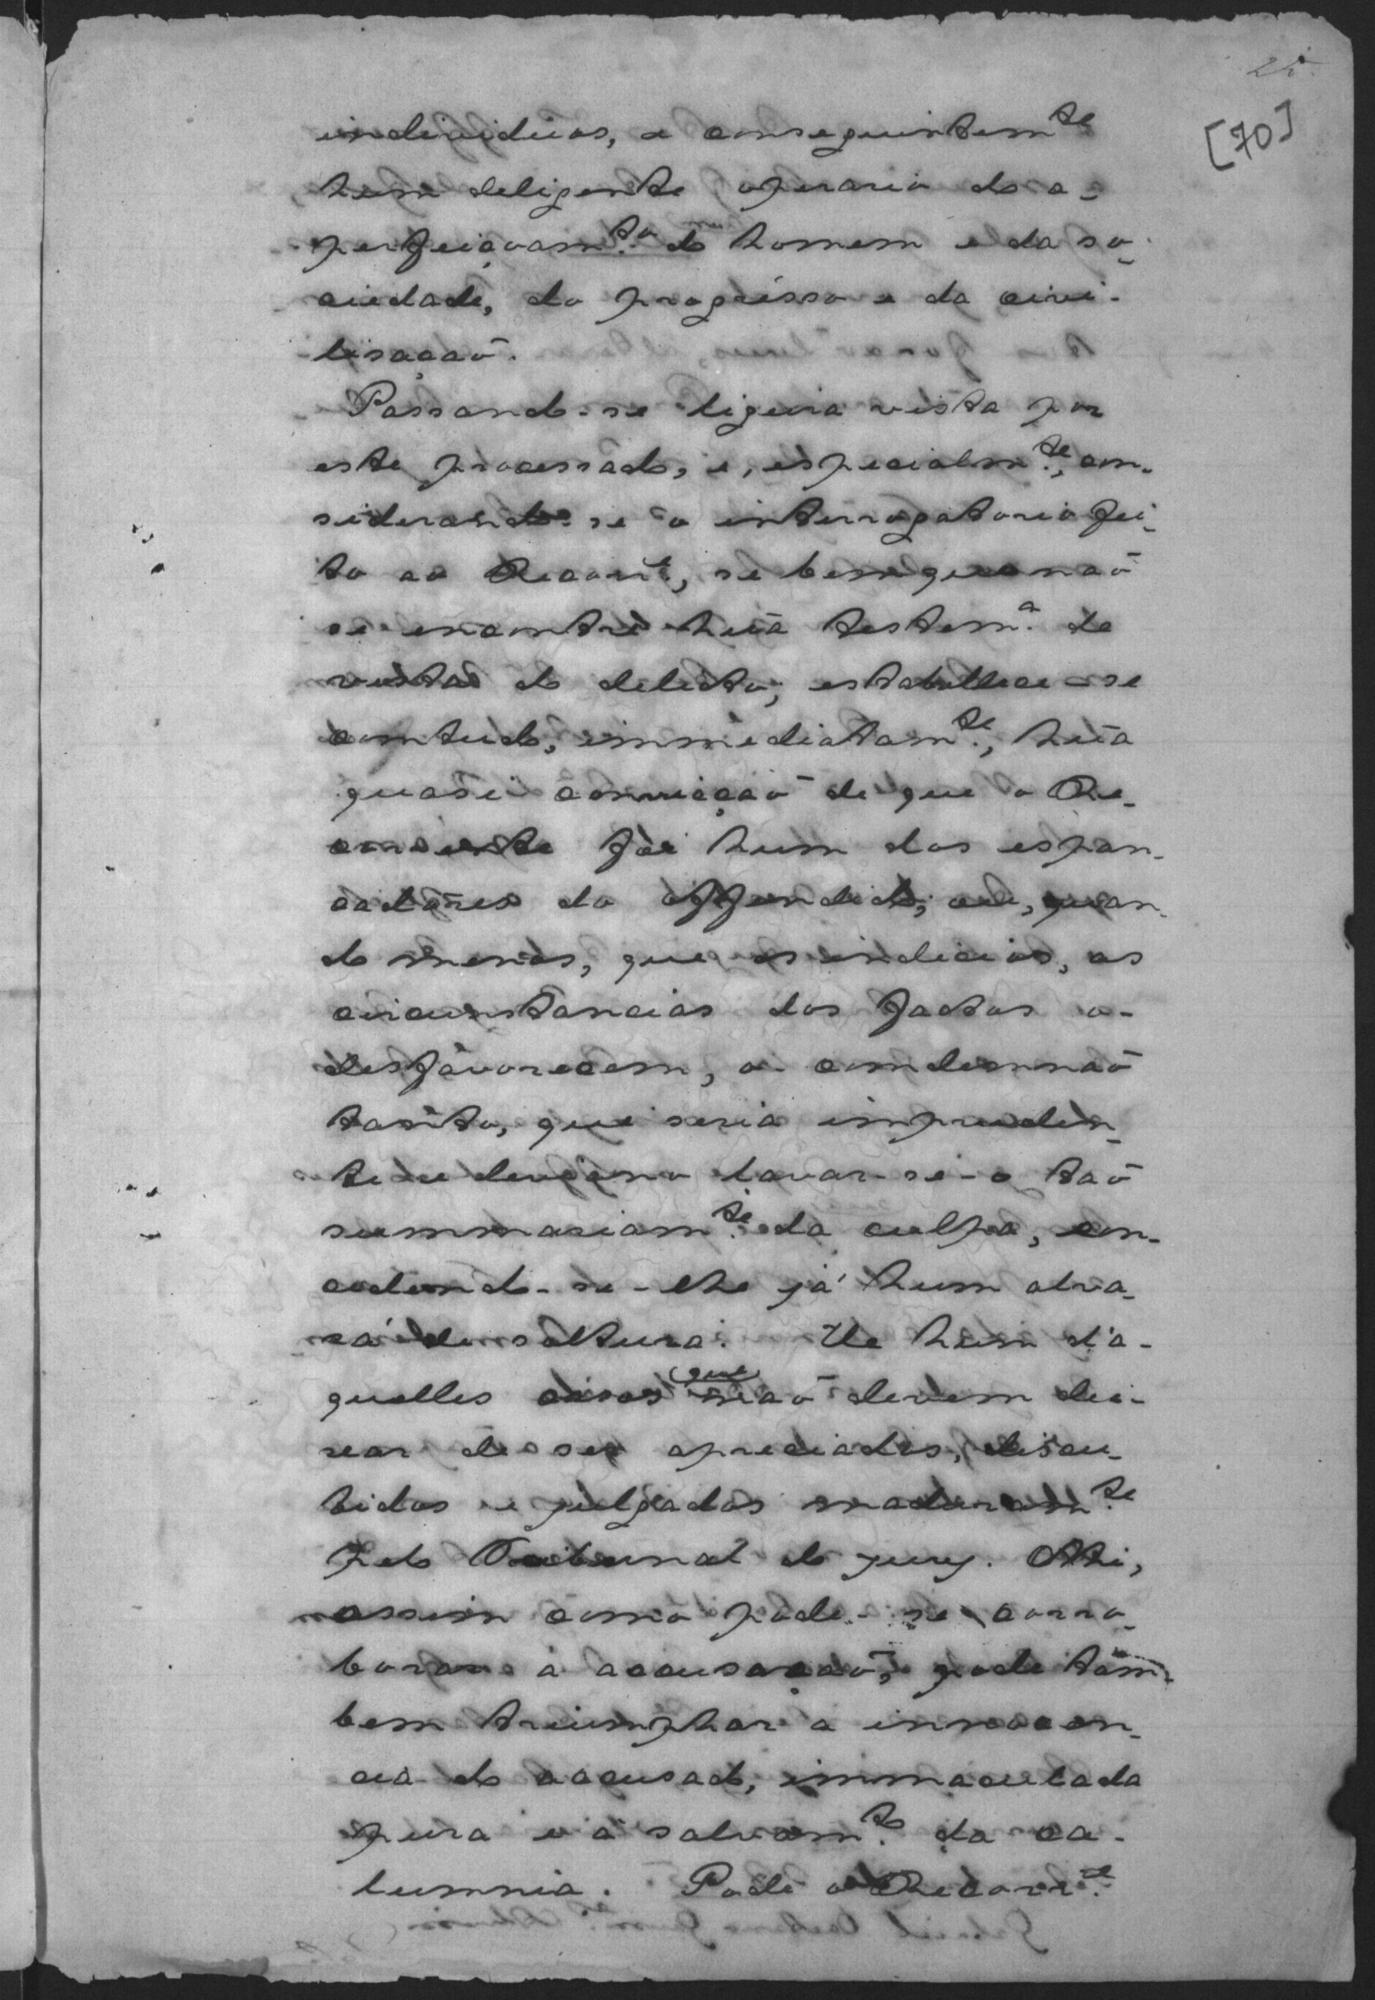 [70]
individuos, e conseguintemte
hum deligente operario do a-
perfeiçoamto do homem e da so-
ciedade, do progrésso e da civi-
lisaçaõ.
Passando-se ligeira vista por
este processado, e, especialmte, con-
siderando-se o interrogatorio fei-
to ao Recorre, se bem que naõ
se encontre huã testema de
vista do delicto, estabellece-se
comtudo, immediatamte, huã
quasi convicçaõ de que o Re-
corrente foi hum dos espan-
cadores do offendido; ou, quan-
do menos, que os indicios, as
circunstancias dos factos o
desfavorecem, o condemnaõ
tanto, que seria impruden-
te e leviano lavar-se-o taõ
summariamte da culpa, con-
cedendo-se-lhe já hum alva-
rá de soltura. He hum d'a-
quelles casos que naõ devem dei-
xar de ser apreciados, discu-
tidos e julgados maduramte
pelo Tribunal do jury. Ahi,
assim como pode-se corro-
borar a accusaçaõ, pode tam-
bem triumphar a innocen-
cia do accusado, immaculada
pura e a salvamto da ca-
lumnia. Pode o Recorre